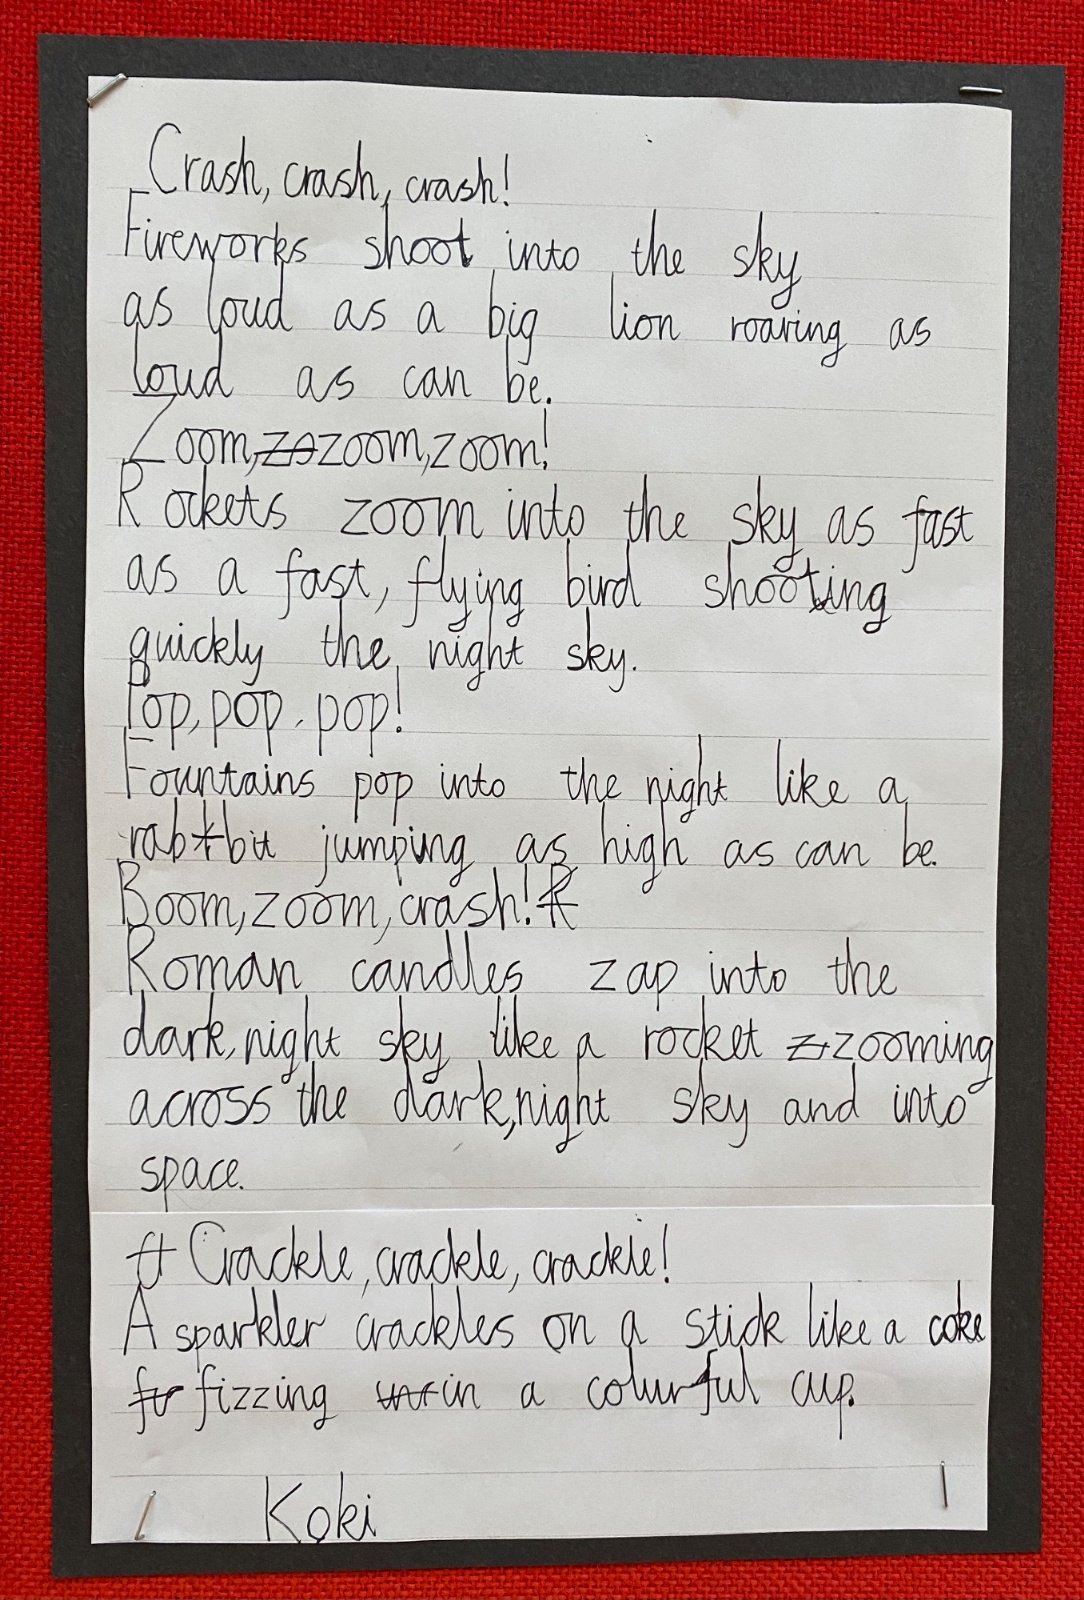 Crash, crash, crash!
Fireworks shoot into the sky
as loud as a big lion roaring as
loud as can be.
Zoom, zoom, zoom!
Rockets zoom into the sky as fast
as a fast, flying bird shooting
quickly the night sky.
Pop, pop, pop!
Fountains pop into the night like a
rabbit jumping as high as can be.
Boom, zoom, crash!
Roman candles zap into the
dark, night sky like a rocket zooming
across the dark, night sky and into
space.
Crackle, crackle, crackle!
A sparkler crackles on a stick like a coke
fizzing in a colurful cup.
Koki